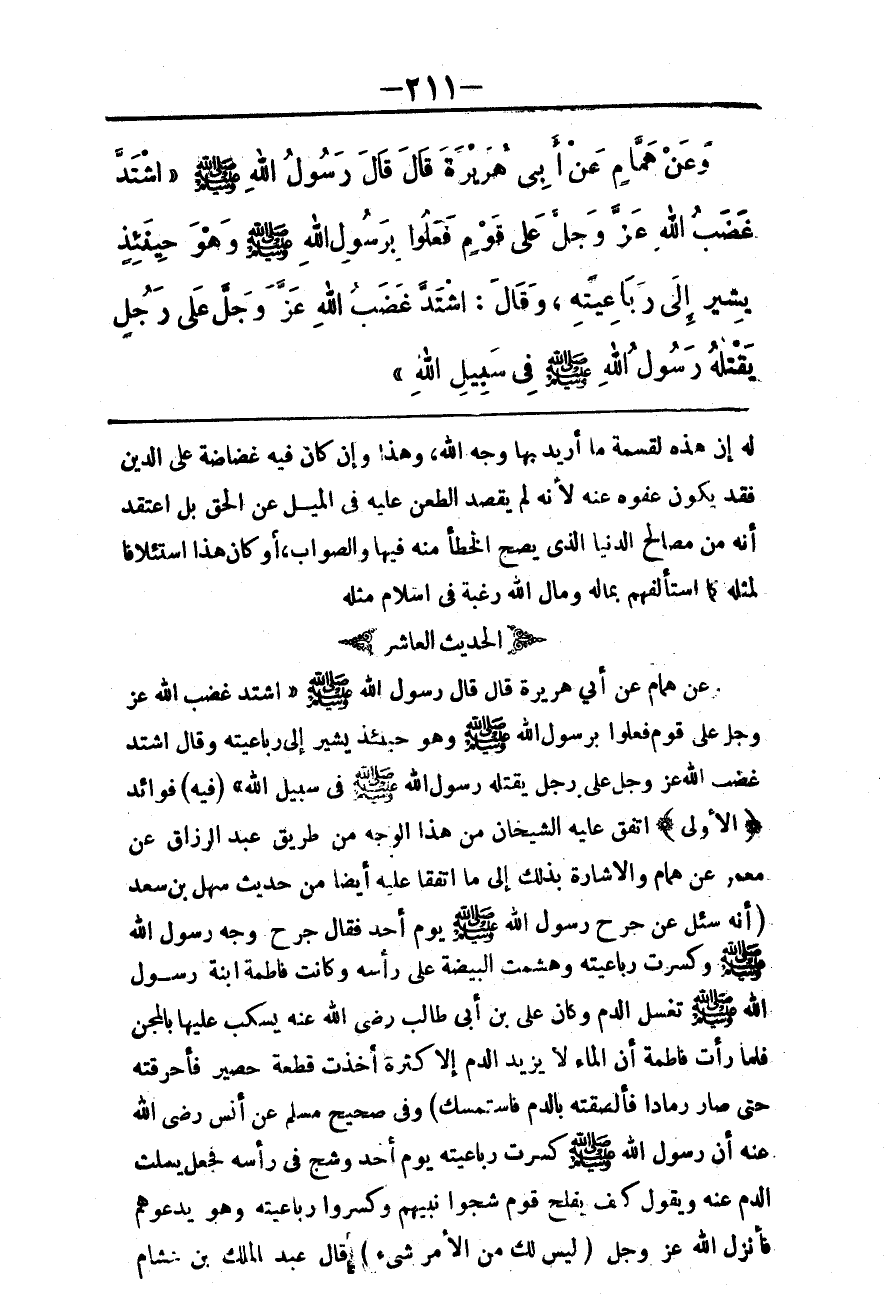 -٢١١-
وَعَنْ هَمَّامٍ عَنْ أَبِى هُرَيْرَةَ قَالَ قَالَ رَسُولُ اللهِ ﷺ « اشْتَدَّ
غَضَبُ اللهِ عَزَّ وَجَلَّ عَلَى قَوْمٍ فَعَلُوا بِرَسُولِ اللهِ ﷺ وَهُوَ حِينَئِذٍ
يشِير إِلَى رَبَاعِيَتِهِ ، وَقَالَ : اشْتَدَّ غَضَبُ اللهِ عَزَّ وَجَلَّ عَلَى رَجُلٍ
يَقْتُلُهُ رَسُولُ اللهِ ﷺ فِى سَبِيلِ اللهِ »
له إن هذه لقسمة ما أريد بها وجه الله، وهذا وإن كان فيه غضاضة على الدين
فقد يكون عفوه عنه لأنه لم يقصد الطعن عليه فى الميل عن الحق بل اعتقد
أنه من مصالح الدنيا الذى يصح الخطأ منه فيها والصواب، أو كان هذا استئلافا
لمثله كما استألفهم بماله ومال الله رغبة فى اسلام مثله
الحديث العاشر
عن همام عن أبي هريرة قال قال رسول الله ﷺ « اشتد غضب الله عز
وجل على قوم فعلوا برسول الله ﷺ وهو حينئذ يشير إلى رباعيته وقال اشتد
غضب الله عز وجل على رجل يقتله رسول الله ﷺ فى سبيل الله » (فيه) فوائد
﴿ الأولى ﴾ اتفق عليه الشيخان من هذا الوجه من طريق عبد الرزاق عن
معمر عن همام والاشارة بذلك إلى ما اتفقا عليه أيضا من حديث سهل بن سعد
(أنه سئل عن جرح رسول الله ﷺ يوم أحد فقال جرح وجه رسول الله
ﷺ وكسرت رباعيته وهشمت البيضة على رأسه وكانت فاطمة ابنة رسول
الله ﷺ تغسل الدم وكان على بن أبى طالب رضى الله عنه يسكب عليها بالمجن
فلما رأت فاطمة أن الماء لا يزيد الدم إلا كثرة أخذت قطعة حصير فأحرقته
حتى صار رمادا فألصقته بالدم فاستمسك) وفى صحيح مسلم عن أنس رضى الله
عنه أن رسول الله ﷺ كسرت رباعيته يوم أحد وشج فى رأسه فجعل يسلت
الدم عنه ويقول كيف يفلح قوم شجوا نبيهم وكسروا رباعيته وهو يدعوهم
فأنزل الله عز وجل ( ليس لك من الأمر شىء ) قال عبد الملك بن هشام